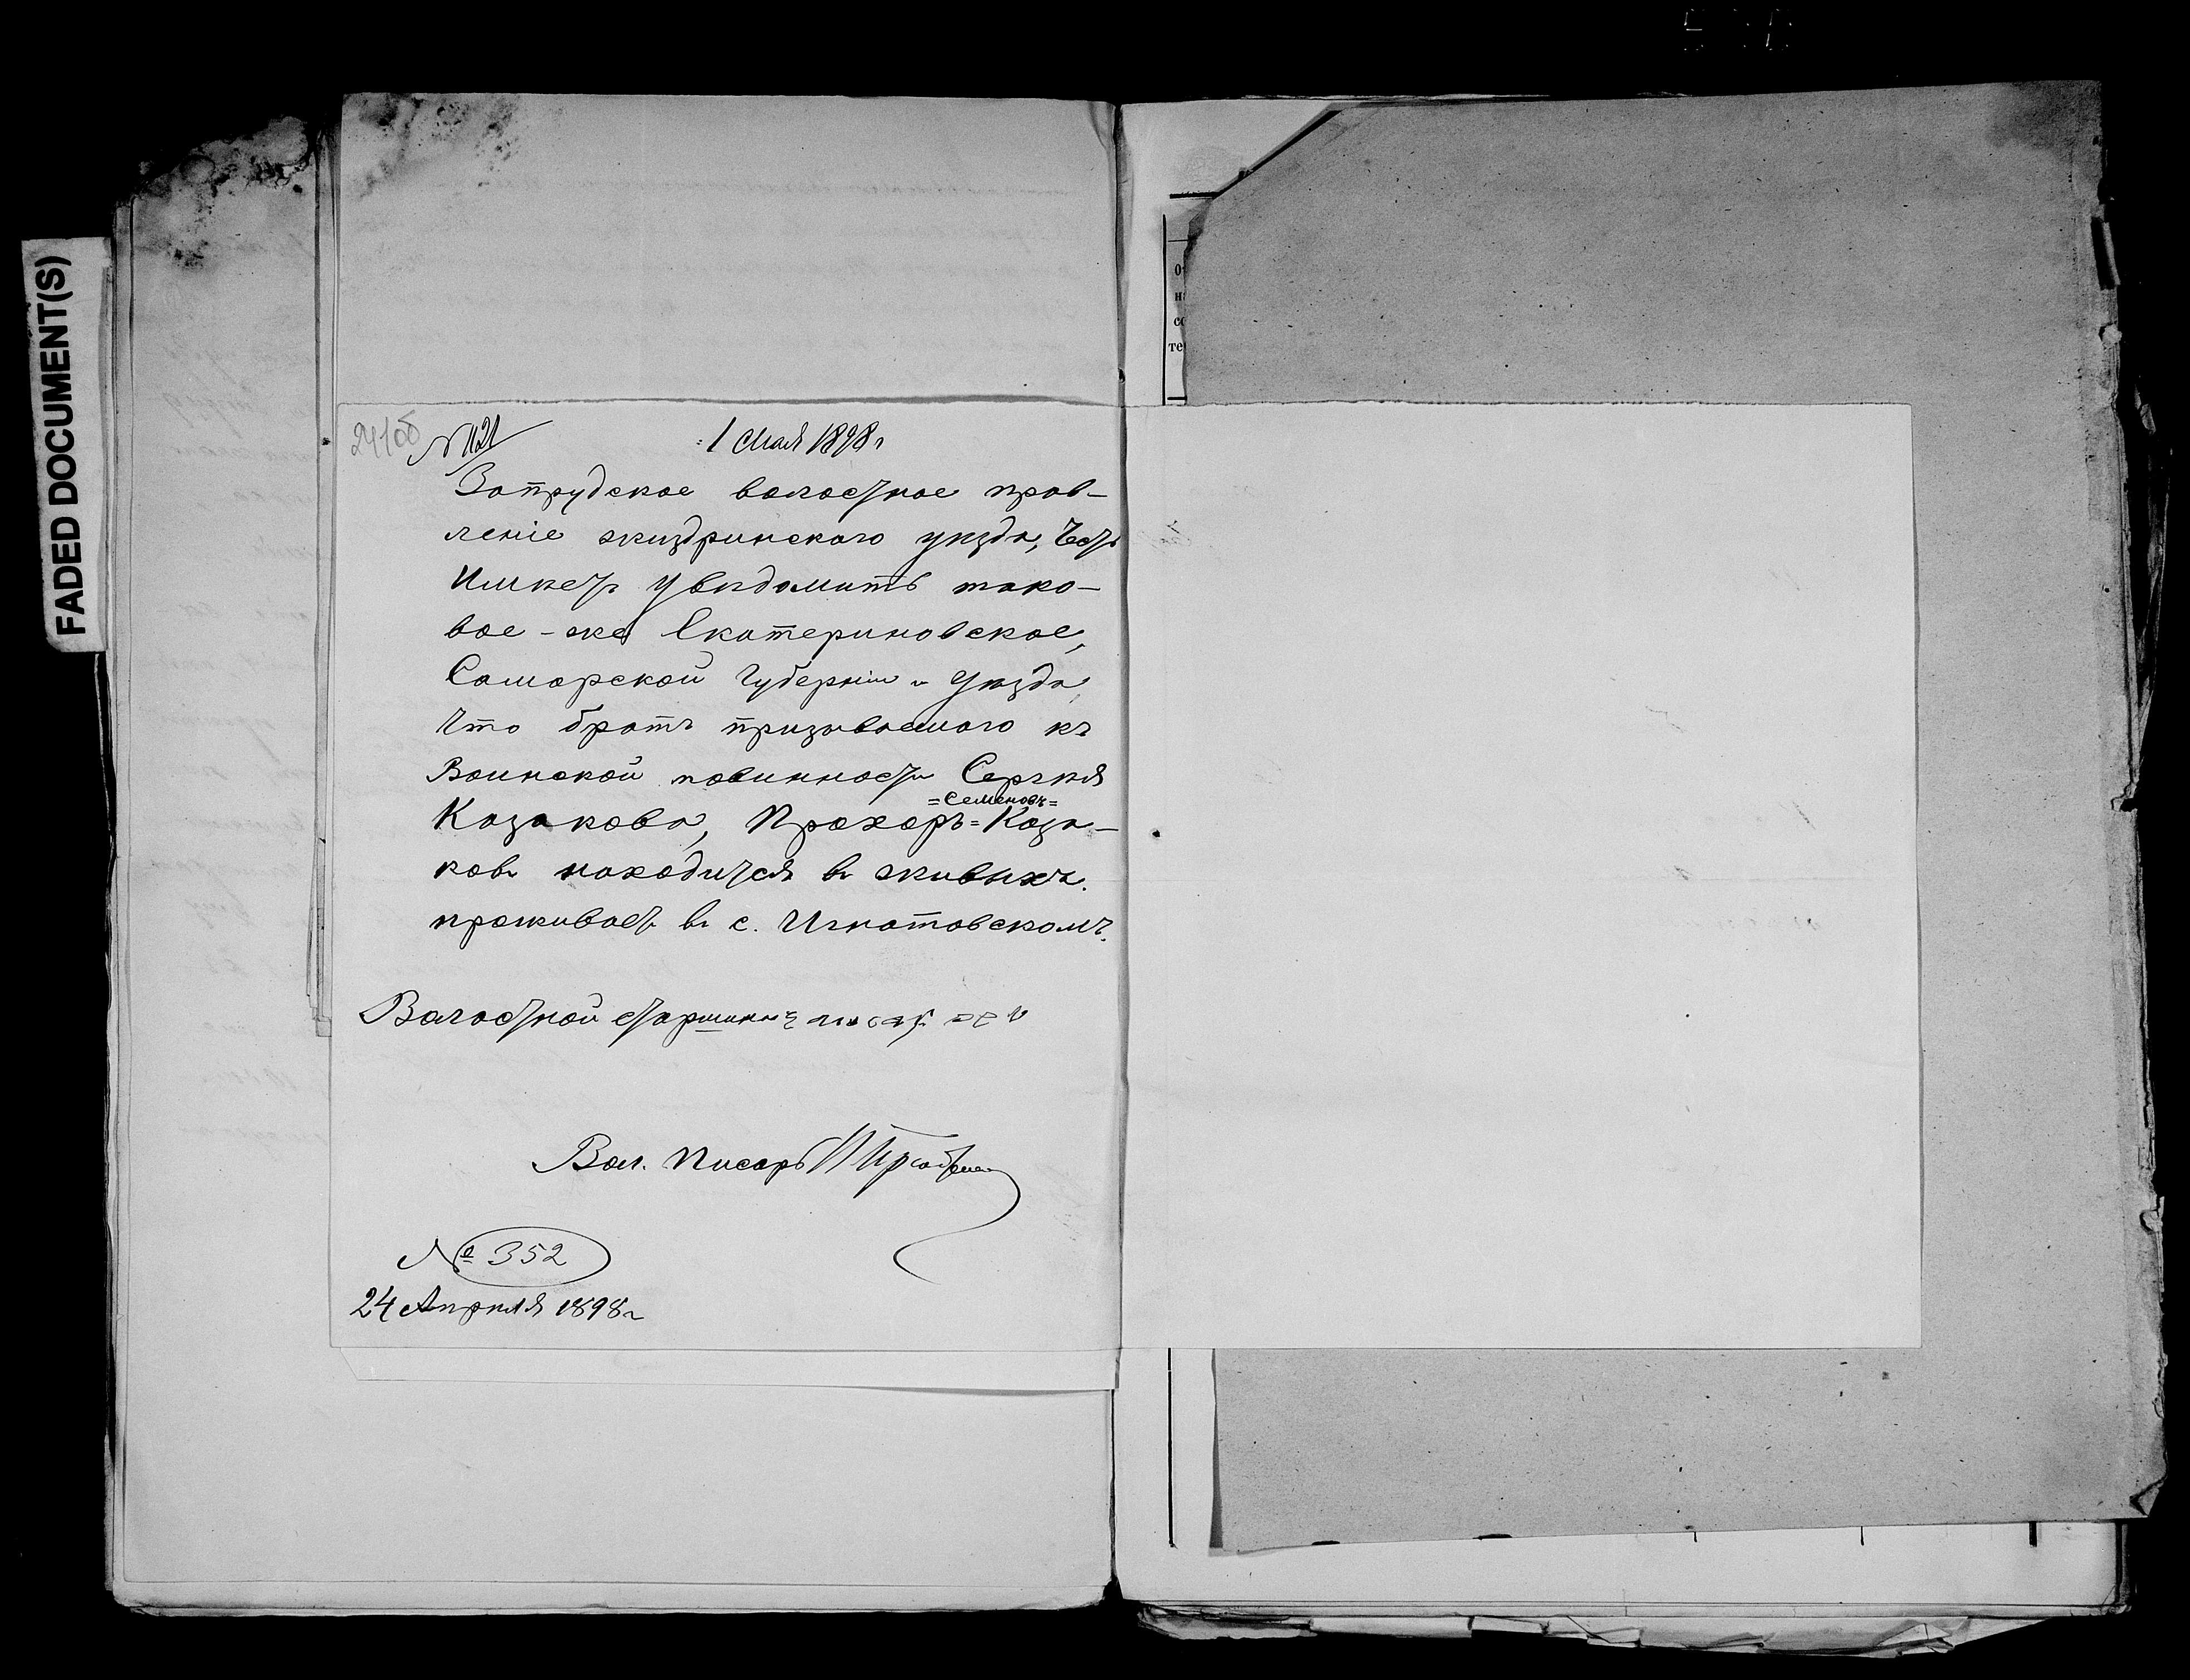 FADED DOCUMENT(S)
241об
№ 1121
1 Мая 1898 г
Запрудское волостное прав-
ленiе жиздринскаго уѣзда, Честь
Имѣетъ увѣдомить тако-
вое-же Екатериновское,
Самарской Губернiи и уѣзда,
что братъ призываемаго къ
Воинской повинности Сергѣя
=Семеновъ=
Казакова, Прохоръ=Каза-
ковъ находится въ живыхъ.
проживаетъ въ с. Игнатовскомъ.
Волостной старшина
Вол. Писарь
№ 352
24 Апрѣля 1898 г